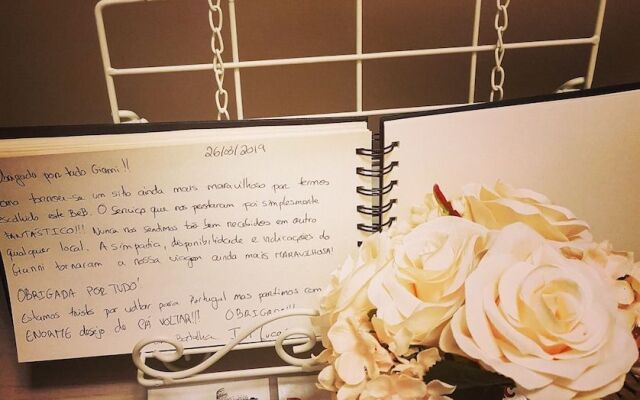 26/03/2019
Obrigada por tudo Gianni!!
Roma tornou-se um sítio ainda mais maravilhoso por termos
escolhido este B&B. O serviço que nos prestaram foi simplesmente
FANTÁSTICO!!! Nunca nos sentimos tão bem recebidos em outro
qualquer local. A simpatia, disponibilidade e indicações do
Gianni tornaram a nossa viagem ainda mais MARAVILHOSA!
OBRIGADA POR TUDO!
Estamos tristes por voltar para Portugal mas partimos com
ENORME desejo de CÁ VOLTAR!!! OBRIGAD